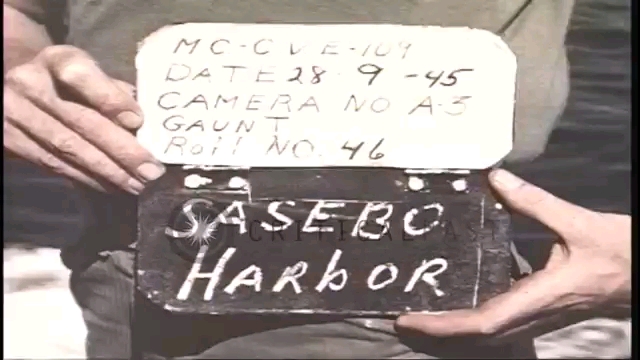 MC-CVE-109
DATE 28-9-45
CAMERA NO A-3
GAUNT
Roll NO. 46
SASEBO
CRITICALPAST
HARbOR